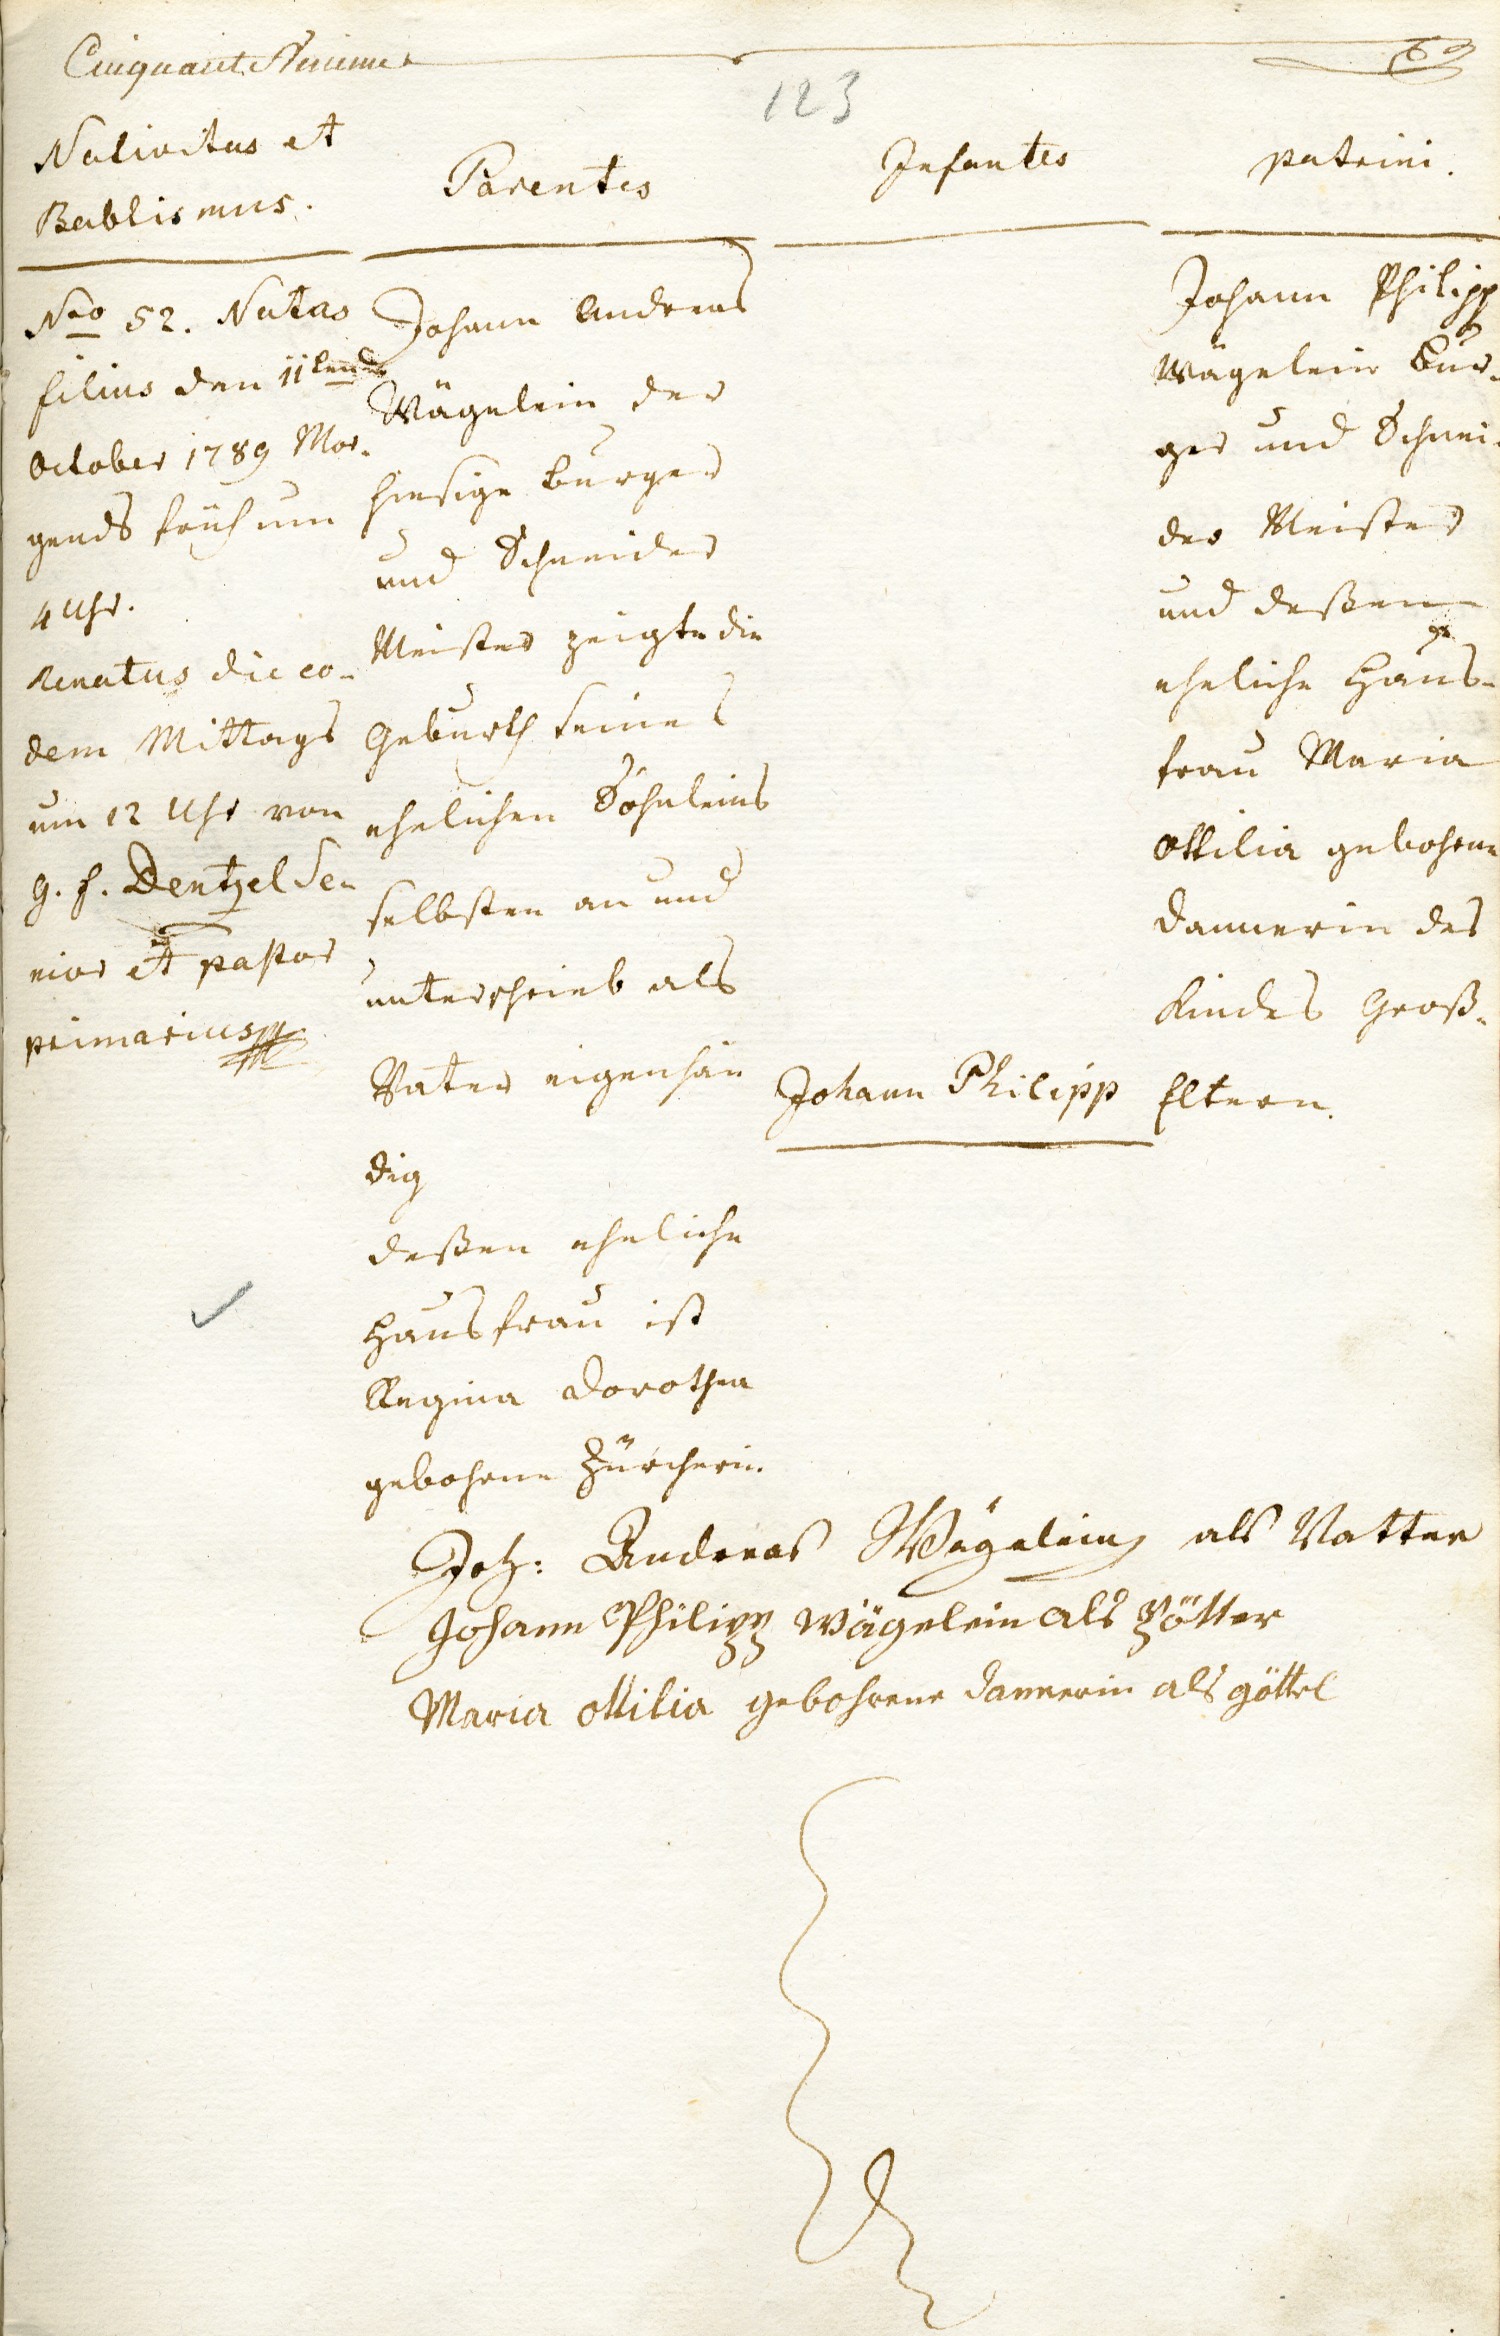 Cinquant Neuieme
123
Nativitas et
Babtismus.
Parentes
Infantes
patrini.
Nro 52. Natus
filius den 11ten
October 1789 Mor-
gends früh um
4 Uhr.
Renatus die eo-
dem Mittags
um 12 Uhr von
G. F. Dentzel Se-
nior et pastor
primarius
Johann Andreas
Wägelein der
hiesige burger
und Schneider
Meister zeigte die
Geburth seines
ehelichen Söhnleins
selbsten an und
unterschrieb als
Vater eigenhän
dig
deßen eheliche
Hausfrau ist
Regina Dorothea
gebohrne Zürcherin.
Johann Philipp
Johann Philipp
Wägelein Bur-
ger und Schnei-
der Meister
und deßen
eheliche Haus-
frau Maria
Ottilia gebohrne
Dannerin des
Kindes Groß-
Eltern.
Joh: Andreas Wägelein als Vatter
Johann Philipp Wägelein als Götter
Maria Ottilia gebohrene Dannerin als göttel